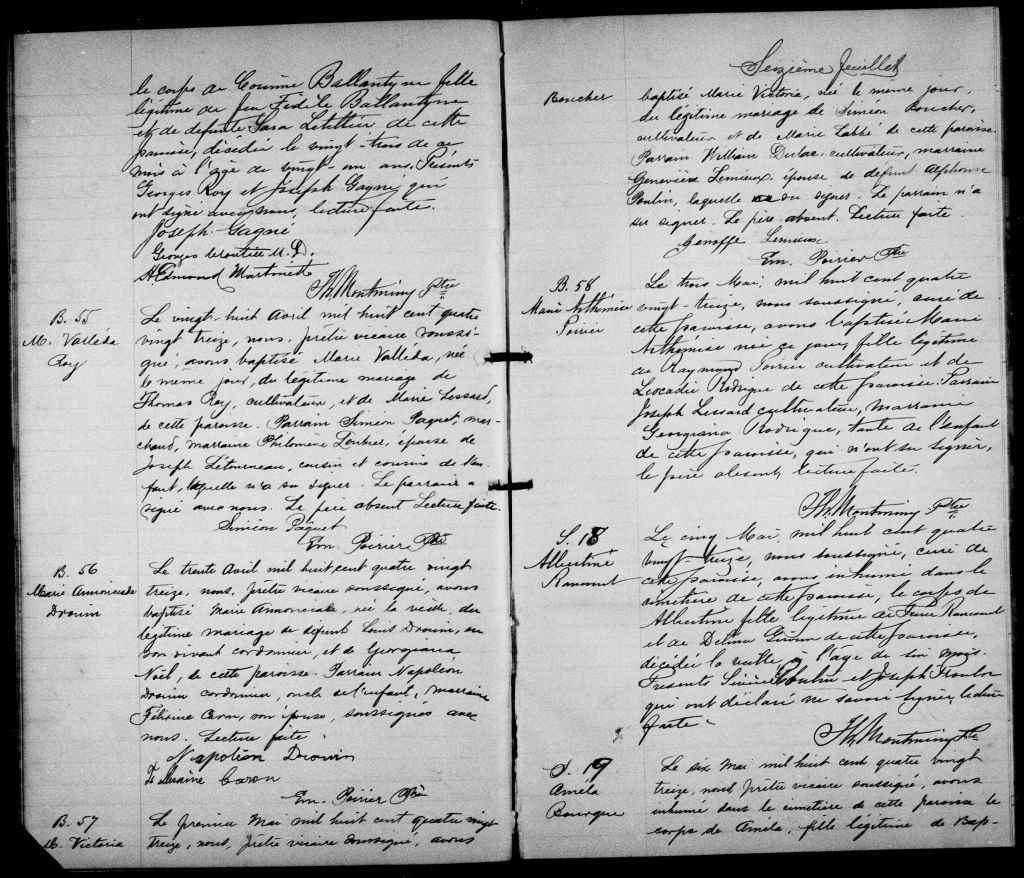 le corps de Corinne Ballantyne fille
légitime de feu Fidèle Ballantyne
et de defunte Sara Letellier de cette
paroisse, décédée le vingt-trois de ce
mois à l'âge de vingt-un ans. Présents
Georges Roy et Joseph Gagné, qui
ont signé avec nous, lecture faite.
Joseph Gagné
Georges M.D.
Edmond Martinette
Th. Montminy Ptre
B. 55
M. Valléda
Roy
Le vingt-huit Avril mil huit cent quatre
vingt treize, nous, prêtre vicaire soussi-
gné, avons baptisé Marie Valléda, née
le même jour, du légitime mariage de
Thomas Roy, cultivateur, et de Marie Lessard,
de cette paroisse. Parrain Simeon Paquet, mar-
chand, marraine Philomène Loubier, épouse de
Joseph Létourneau, cousin et cousine de l'en-
fant, laquelle n'a su signer. Le parrain a
signé avec nous. Le père absent Lecture faite.
Siméon Paquet
Em. Poirier Ptre
B. 56
Marie Annonciade
Drouin
Le trente Avril mil huit cent quatre vingt
treize, nous, prêtre vicaire soussigné, avons
baptisé Marie Annonciade, née la veille, du
légitime mariage de défunt Louis Drouin, en
son vivant cordonnier, et de Georgiana
Noël, de cette paroisse. Parrain Napoléon
Drouin cordonnier, oncle de l'enfant, marraine
Caron, son épouse, soussignés avec
nous. Lecture faite.
Napoléon Drouin
Caron
Em. Poirier Ptre
B. 57
M. Victoria
Le premier Mai mil huit cent quatre vingt
treize, nous, prêtre vicaire soussigné, avons
Seizième feuillet
Boucher
baptisé Marie Victoria, née le même jour,
du légitime mariage de Siméon Boucher,
cultivateur et de Marie Labbé de cette paroisse.
Parrain William Dulac, cultivateur, marraine
Geneviève Lemieux, épouse de défunt Alphonse
Poulin, laquelle a su signer. Le parrain n'a
su signer. Le père absent. Lecture faite.
Lemieux
Em. Poirier Ptre
B. 58
Marie Arthémise
Poirier
Le trois Mai, mil huit cent quatre
vingt-treize, nous soussigné, curé de
cette paroisse, avons baptisé Marie
Arthémise née ce jour, fille légitime
de Raymond Poirier cultivateur et de
Léocadie Rodrigue de cette paroisse. Parrain
Joseph Lessard cultivateur, Marraine
Georgiana Rodrigue, tante de l'enfant
de cette paroisse, qui n'ont su signer,
le père absent, lecture faite.
Th. Montminy Ptre
S. 18
Albertine
Rancourt
Le cinq Mai, mil huit cent quatre
vingt-treize, nous soussigné, curé de
cette paroisse, avons inhumé dans le
cimetière de cette paroisse, le corps de
Albertine fille légitime de Rancourt
et de Delima de cette paroisse,
décédée la veille à l'âge de six mois.
Présents Poulin et Joseph
qui ont déclaré ne savoir signer, lecture
faite.
Th. Montminy Ptre
S. 19
Améla
Bourque
Le six Mai mil huit cent quatre vingt
treize, nous prêtre vicaire soussigné, avons
inhumé dans le cimetière de cette paroisse le
corps de Améla, fille légitime de Bap-